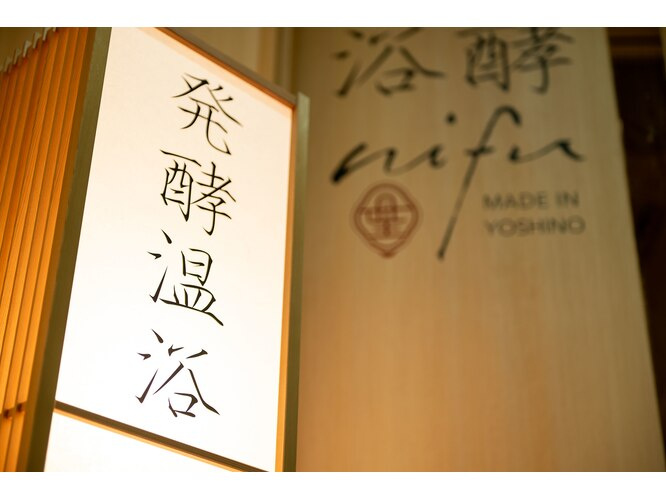 発酵温浴
浴酵
nifu
MADE IN
YOSHINO